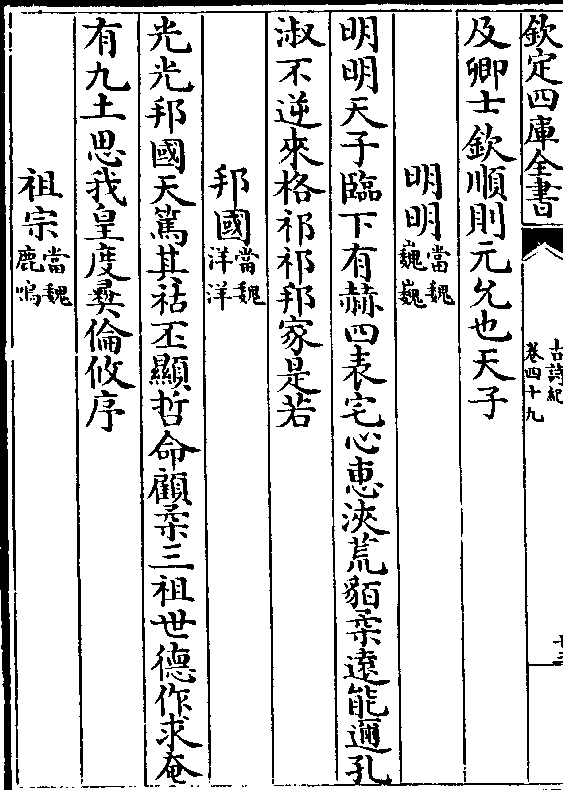 欽定四庫全書
古詩紀
卷四十九
及卿士欽順則元允也天子
明明當魏巍巍
明明天子臨下有赫四表宅心惠浹荒貊柔遠能邇孔
淑不逆來格祁祁邦家是若
邦國當魏洋洋
光光邦國天篤其祜丕顯哲命顧柔三祖世德作求奄
有九土思我皇度彝倫攸序
祖宗當魏鹿鳴